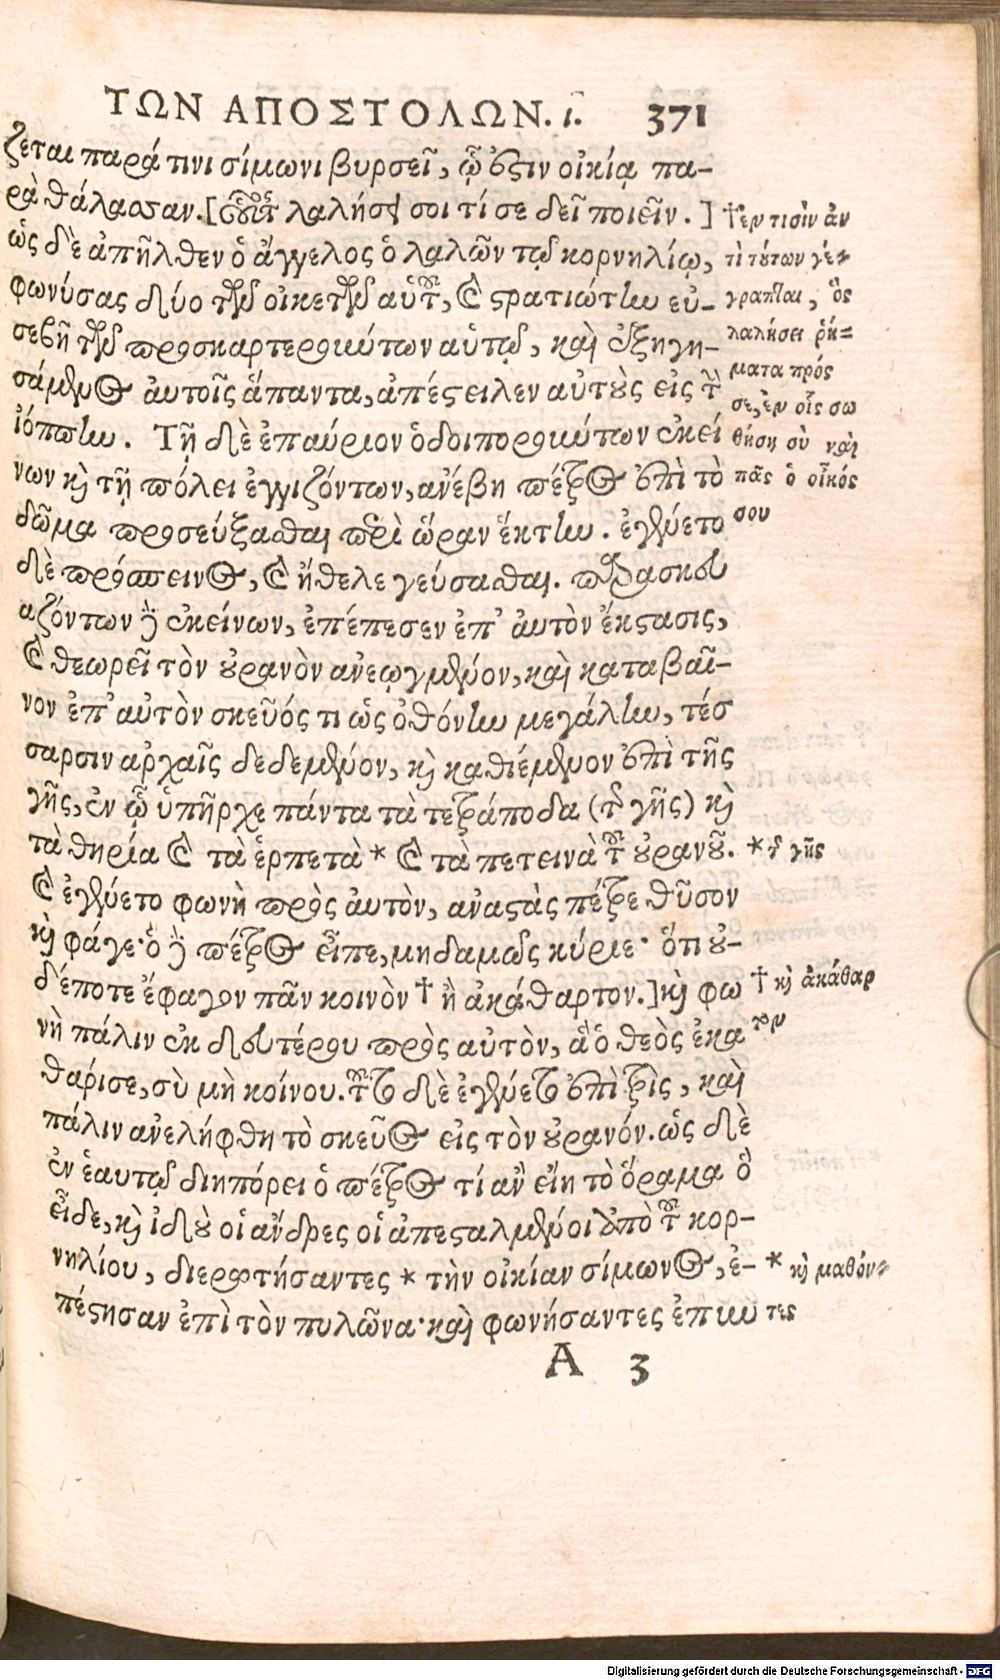 ΤΩΝ ΑΠΟΣΤΟΛΩΝ. ι. 371
ζεται παρά τινι σίμωνι βυρσεῖ, ᾧ ἐστιν οἰκία πα-
ρὰ θάλασσαν. [οὗτος λαλήσει σοι τί σε δεῖ ποιεῖν. ]
ὡς δὲ ἀπῆλθεν ὁ ἄγγελος ὁ λαλῶν τῷ κορνηλίῳ,
φωνήσας δύο τῶν οἰκετῶν αὑτοῦ, καὶ στρατιώτην εὐ-
σεβῆ τῶν προσκαρτερούντων αὑτῷ, καὶ ἐξηγη-
σάμενος ἀυτοῖς ἅπαντα, ἀπέστειλεν αὐτοὺς εἰς τὴν
ἰόππην. Τῇ δὲ ἐπαύριον ὁδοιπορούντων ἐκεί
νων καὶ τῇ πόλει ἐγγιζόντων, ἀνέβη πέτρος ἐπὶ τὸ
δῶμα προσεύξασθαι περὶ ὥραν ἕκτην. ἐγένετο
δὲ πρόσπεινος, καὶ ἤθελε γεύσασθαι. παρασκευ
αζόντων δὲ ἐκείνων, ἐπέπεσεν ἐπ' ἀυτὸν ἔκστασις,
καὶ θεωρεῖ τὸν οὐρανὸν ἀνεῳγμένον, καὶ καταβαῖ-
νον ἐπ' αὐτὸν σκεῦός τι ὡς ὀθόνην μεγάλην, τέσ
σαρσιν αρχαῖς δεδεμένον, καὶ καθιέμενον ἐπὶ τῆς
γῆς, ἐν ᾧ ὑπῆρχε πάντα τὰ τετράποδα (τῆς γῆς) καὶ
τὰ θηρία καὶ τὰ ἑρπετὰ * καὶ τὰ πετεινὰ τοῦ οὐρανοῦ.
καὶ ἐγένετο φωνὴ πρὸς ἀυτὸν, ἀναστὰς πέτρε θῦσον
καὶ φάγε· ὁ δὲ πέτρος εἶπε, μηδαμῶς κύριε· ὅτι οὐ-
δέποτε ἔφαγον πᾶν κοινὸν † ἢ ἀκάθαρτον.] καὶ φω
νὴ πάλιν ἐκ δευτέρου πρὸς αὐτὸν, ἃ ὁ θεὸς ἐκα
θάρισε, σὺ μὴ κοίνου. τοῦτο δὲ ἐγένετο ἐπὶ τρὶς, καὶ
πάλιν ἀνελήφθη τὸ σκεῦος εἰς τὸν οὐρανόν. ὡς δὲ
ἐν ἑαυτῷ διηπόρει ὁ πέτρος τί ἂν εἴη τὸ ὅραμα ὃ
εἶδε, καὶ ἰδοὺ οἱ ἄνδρες οἱ ἀπεσταλμένοι ὑπὸ τοῦ κορ-
νηλίου, διερωτήσαντες * τὴν οἰκίαν σίμωνος, ἐ-
πέστησαν ἐπὶ τὸν πυλῶνα· καὶ φωνήσαντες ἐπιω
Α 3
† ἐν τισὶν ἀν
τὶ τούτων γέ-
γραπται, ὃς
λαλήσει ῥή-
ματα πρός
σε, ἐν οἷς σω
θήσῃ σὺ καὶ
πᾶς ὁ οἶκός
σου
* τῆς γῆς
† καὶ ἀκάθαρ
τον
* καὶ μαθόν-
τες
Digitalisierung gefördert durch die Deutsche Forschungsgemeinschaft - DFG